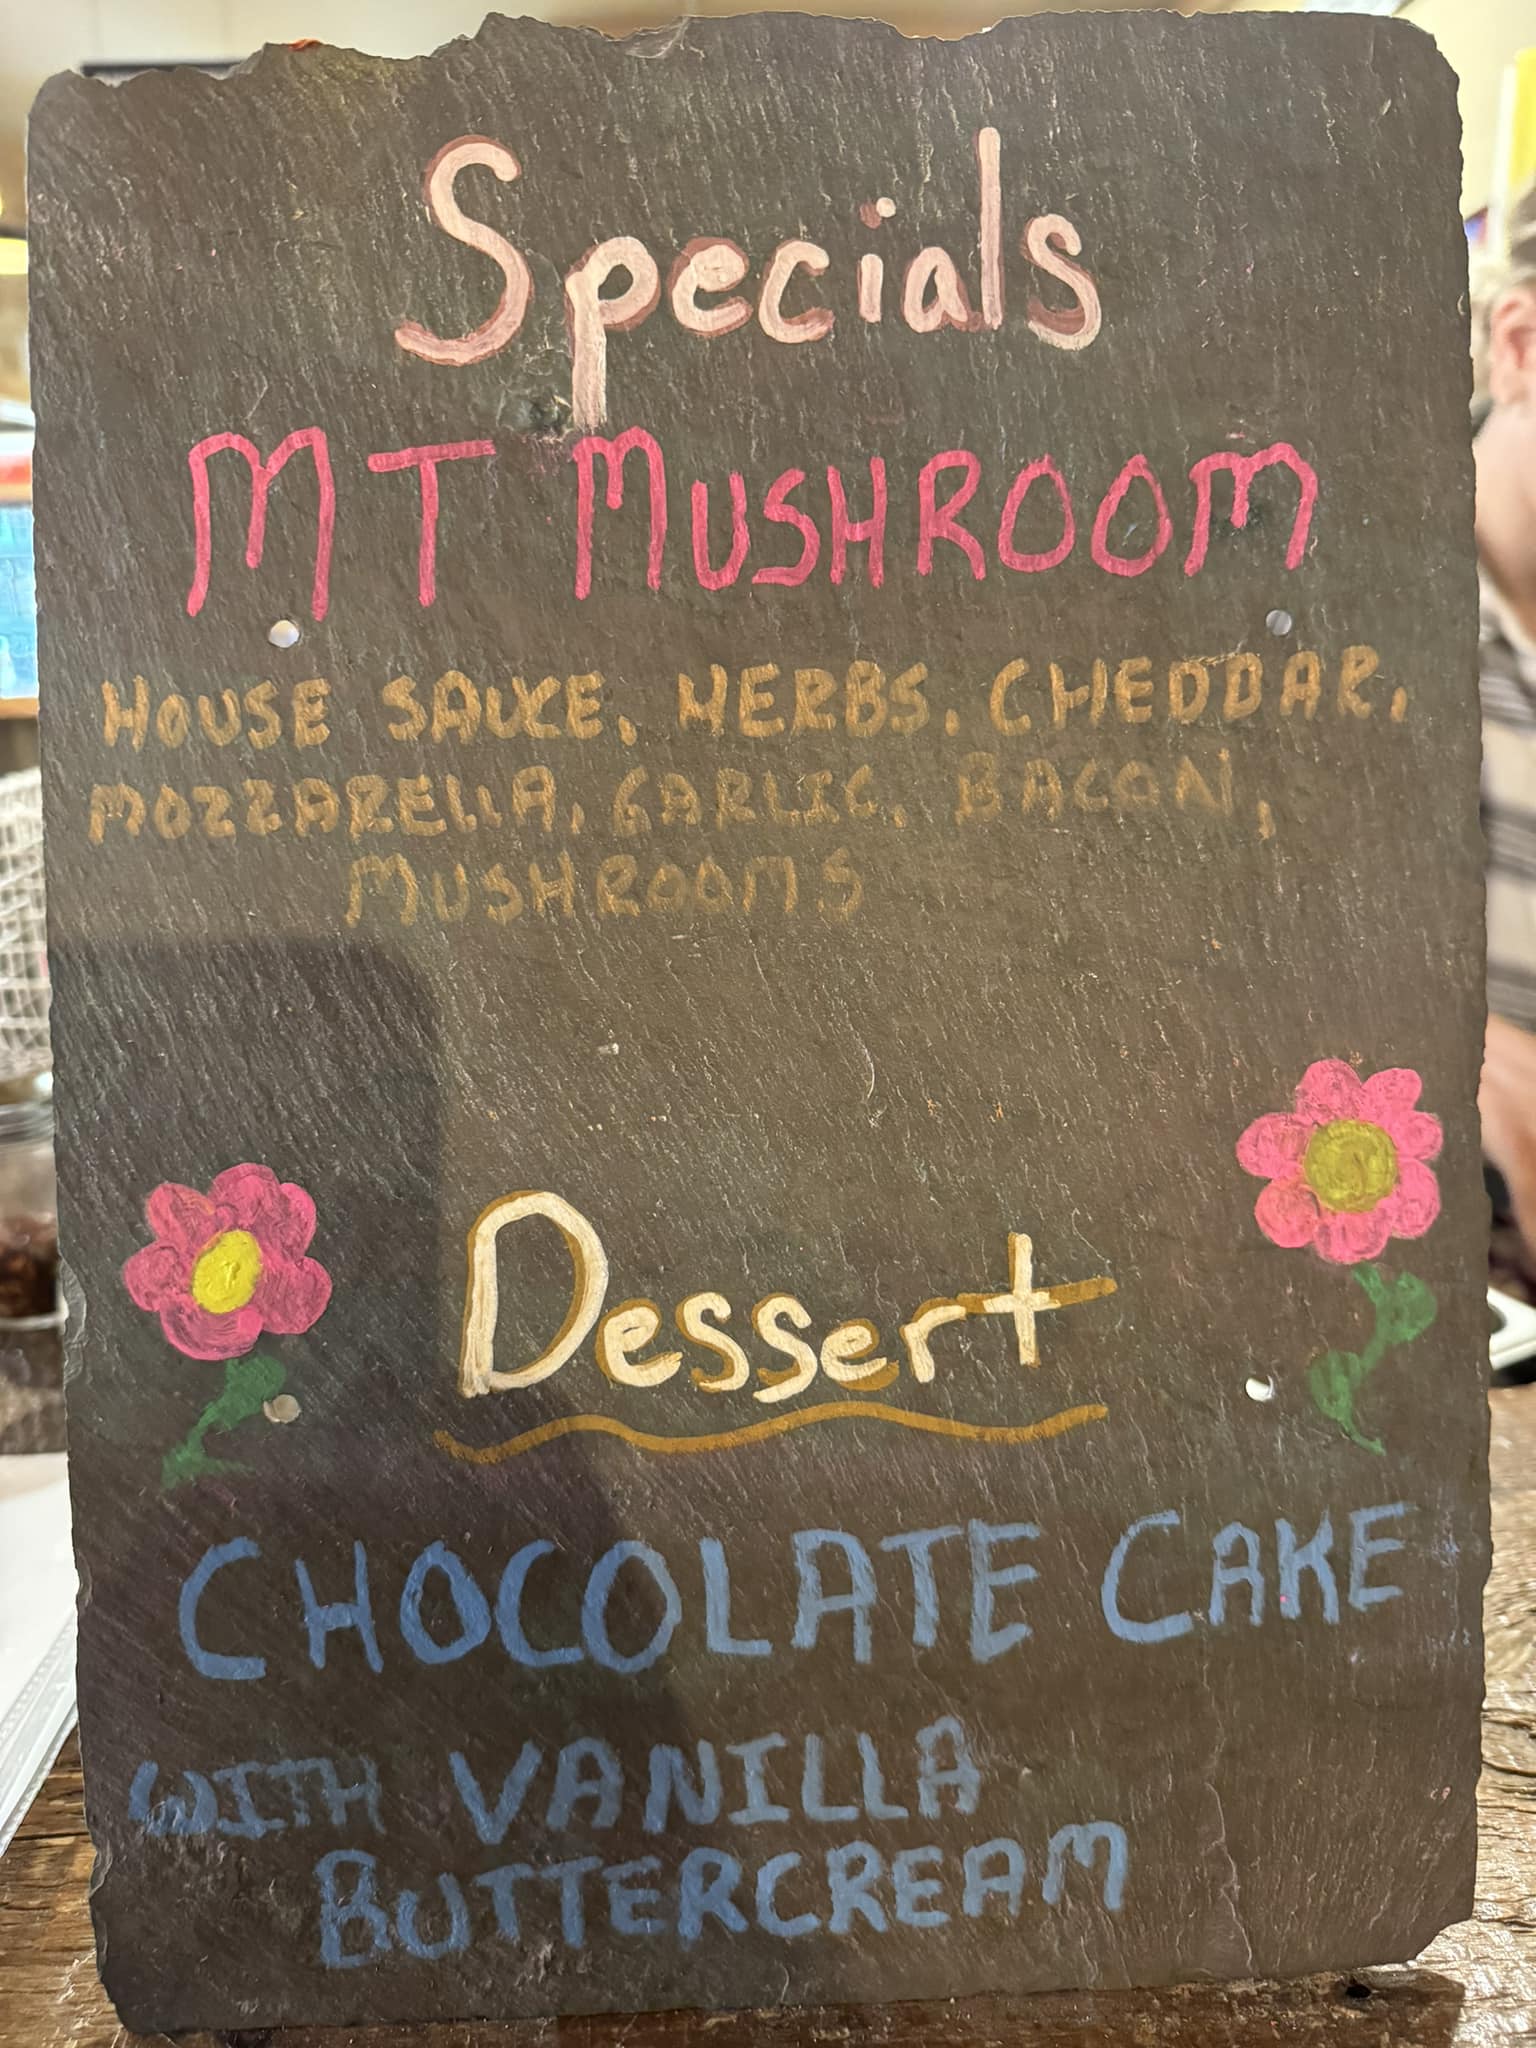 Specials
MT MUSHROOM
HOUSE SAUCE, HERBS, CHEDDAR,
MOZZARELLA, GARLIC, BACON,
MUSHROOMS
Dessert
CHOCOLATE CAKE
WITH VANILLA
BUTTERCREAM